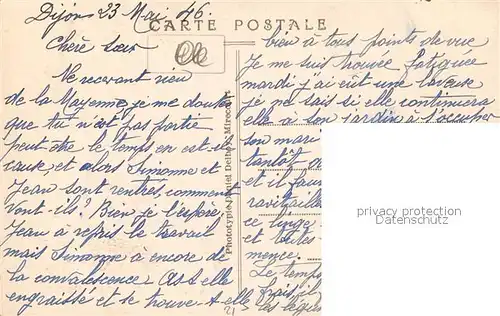 Dijon 23 Mai 46.
CARTE POSTALE
Chère sœur
Ne recevant rien
de la Mayenne je me doute
que tu n'est pas partie
peut être le temps en est
cause, et alors Simonne et
Jean sont rentrés comment
vont-ils? Bien je l'espère,
Jean à repris le travail
mais Simonne à encore de
la convalescence As-t elle
engraissé et se trouve-t-elle
Phototypie Daniel Delboy, Mirecourt
bien à tous points de vue
Je me suis trouvée fatiguée
mardi j'ai eût une laveuse
je ne sais si elle continuera
elle à son jardin à s'occuper
son mari
tantôt
et il faut
ravitaille
ce linge
et toutes
mence.
Le temps
frais, il
les légu
privacy protection
Datenschutz